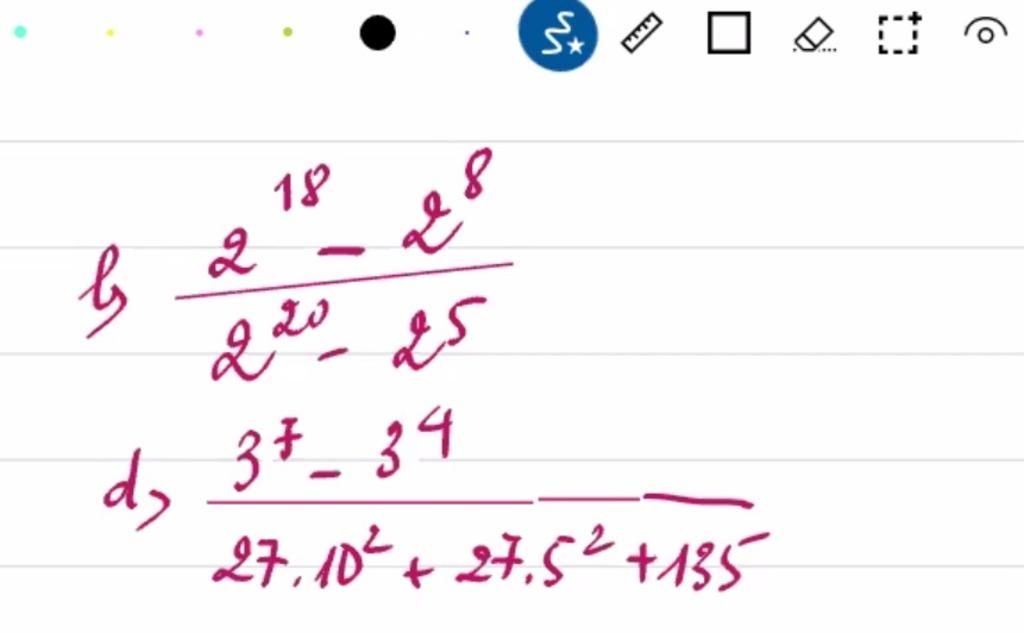 b, (2^18 - 2^8)/(2^20 - 2^5)
d, (3^7 - 3^4)/(27.10^2 + 27.5^2 + 135)